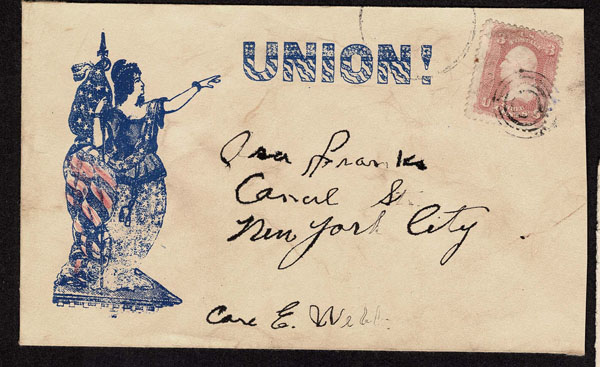 UNION!
Canal St.
New York City
Care E. Webb.